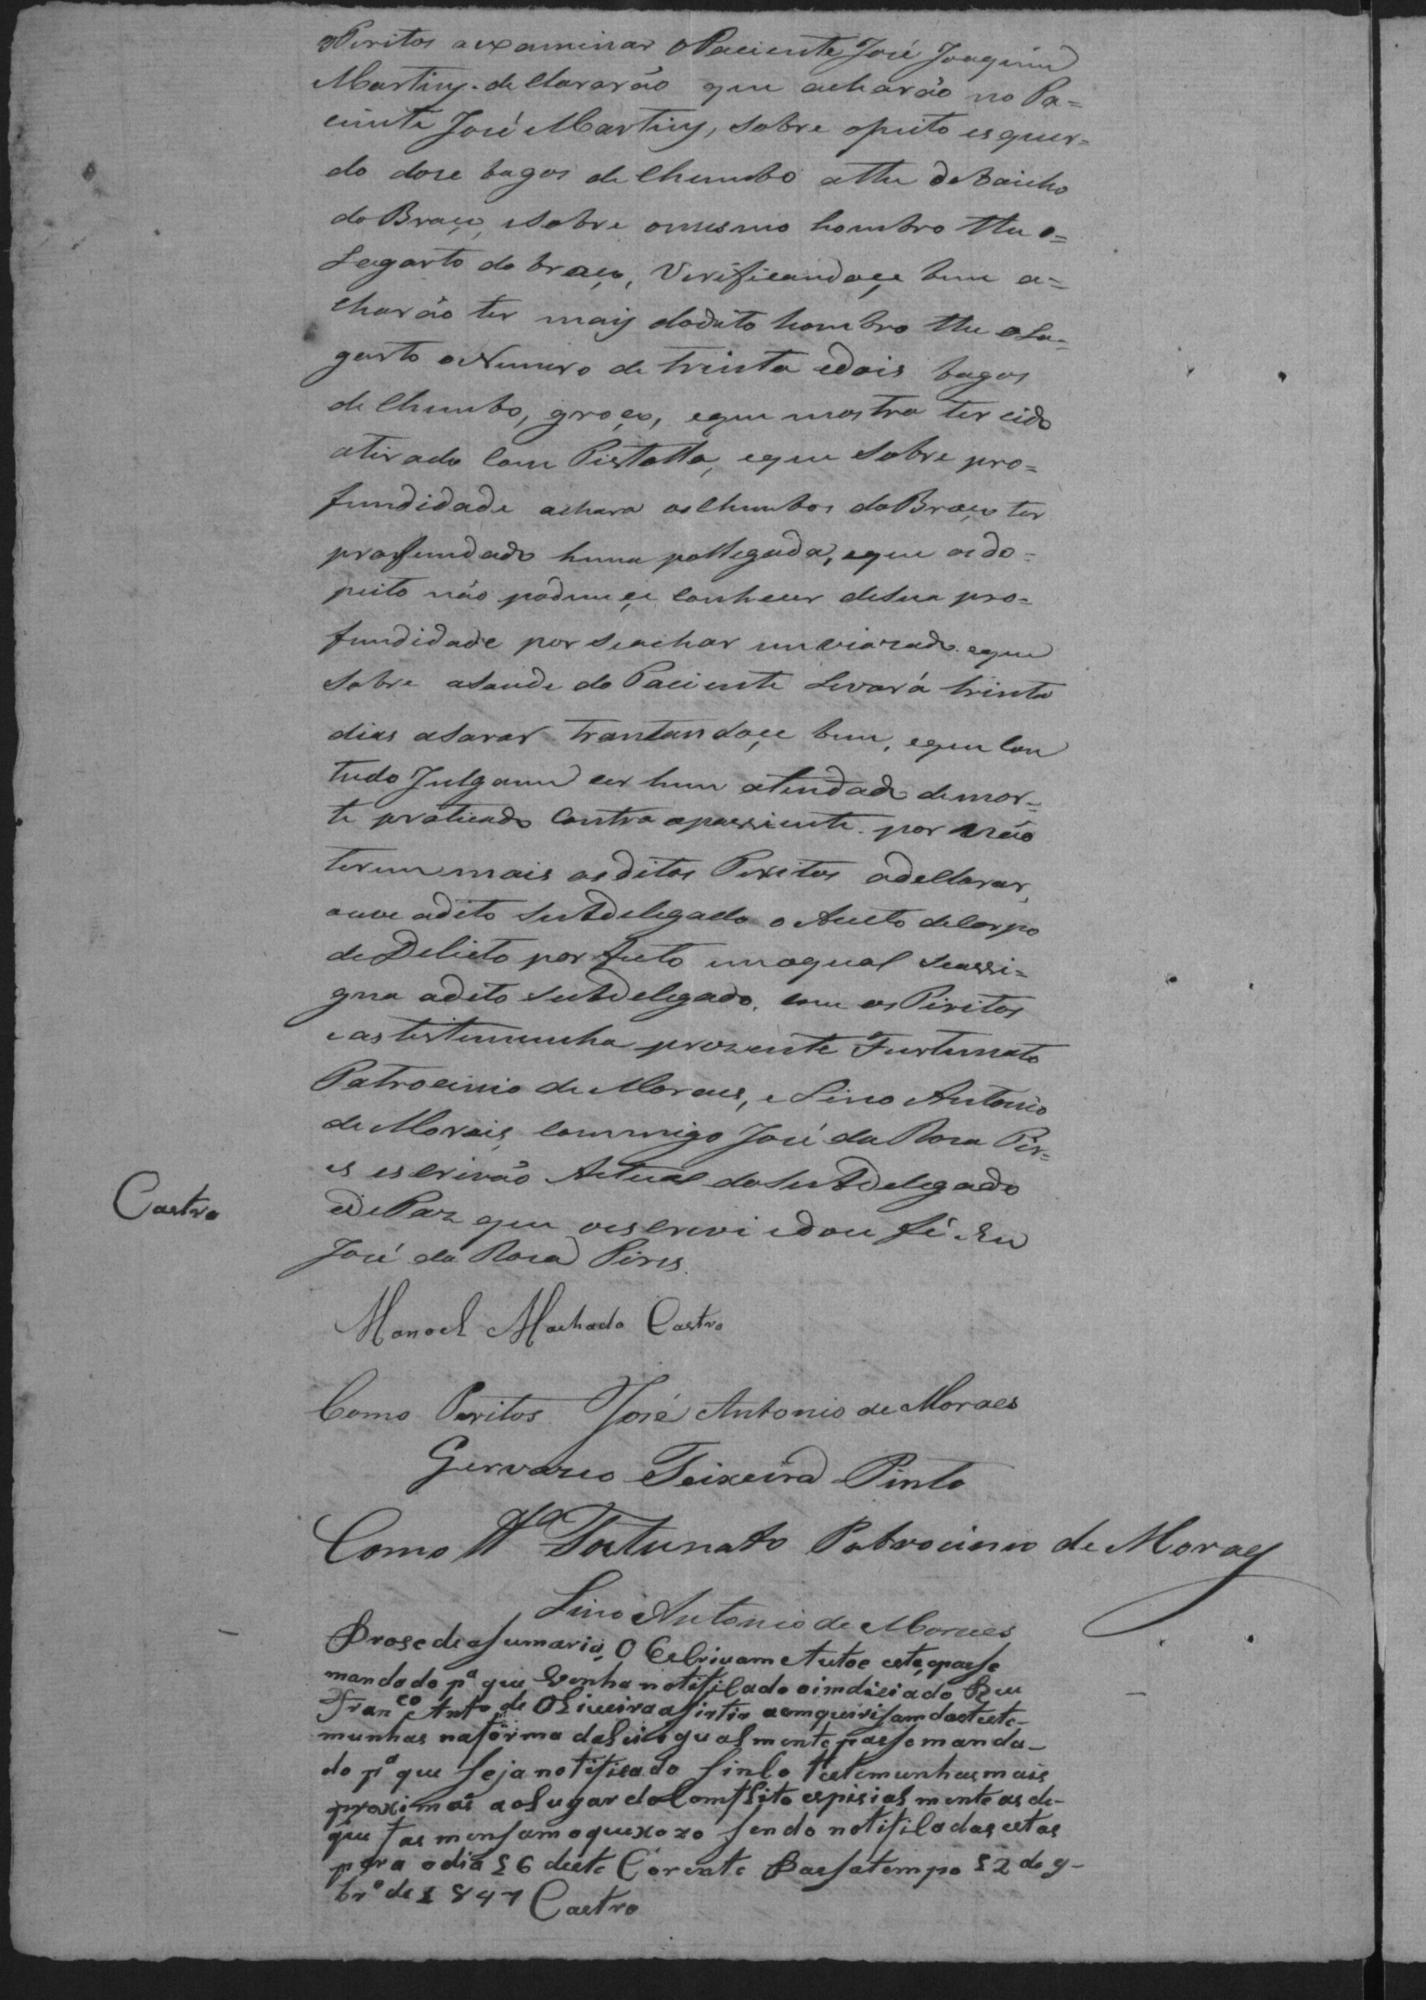 Peritos aexaminar oPaciente José Joaquim
Martiny. declararão que acharão no Pa=
ciente José Martiny, sobre opeito esquer=
do dose bagos de Chumbo athe debaicho
doBraço, esobre omesmo hombro the o=
Lagarto do braço, Verificandoçe bem a=
charão ter mais doditto hombro the oLa=
garto oNumero de trinta edois bagos
deChumbo, groço, eque mostra ter cido
atirado Com Pistolla, eque sobre pro=
fundidade achara osChumbos doBraço ter
profundado huma pollegada, eque osdo=
peito não podem çe Conhecer desua pro=
fundidade por seachar eque
sobre asaude do Paciente Levará trinta
dias asarar trantandoçe bem, eque Con
tudo Julgam cer hum atendado demor=
te praticado Contra opassiente. por não
terem mais osditos Peritos adeclarar,
ouve odito Subdelegado o Aucto deCorpo
deDelicto por feito enoqual seassi=
gna odito Subdelegado. com os Piritos
eas testemunha prezente Furtunato
Patrocinio de Moraes, e Lino Antonio
de Morais, Commigo José da Roza Pir=
es escrivão Actual doSubdelegado
edePaz que oescrevi edou fé. Eu
José da Roza Pires.
Castro
Manoel Machado Castro
Como Peritos José Antonio de Moraes
Gervazio Teixeira Pinto
Como Tta Fortunato Patrocinio de Moraes
Lino Antonio de Moraes
Prosede asumario, O Escrivam Autoe esta, epasse
mandado pa que Venha notifilado oimdiciado Reu
Franco Anto de Oliveira asistir aemquirisam dasteste-
munhas nafórma daLei igualmente passe manda-
do pa que seja notificado sinco testemunhas mais
proximas aoLugar doComflito espisialmente as de-
que fas mensam oqueixozo sendo notifiladas estas
para odia 16 deste Corente Passatempo 12 de 9-
bro de 1847 Castro